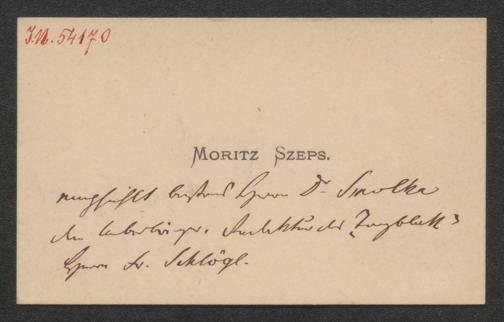 J.N. 54170
MORITZ SZEPS.
empfiehlt bestens Herrn Dr Smolka
den Ueberbringer, Redakteur des „Tagblatt"
Herrn Fr. Schlögl.